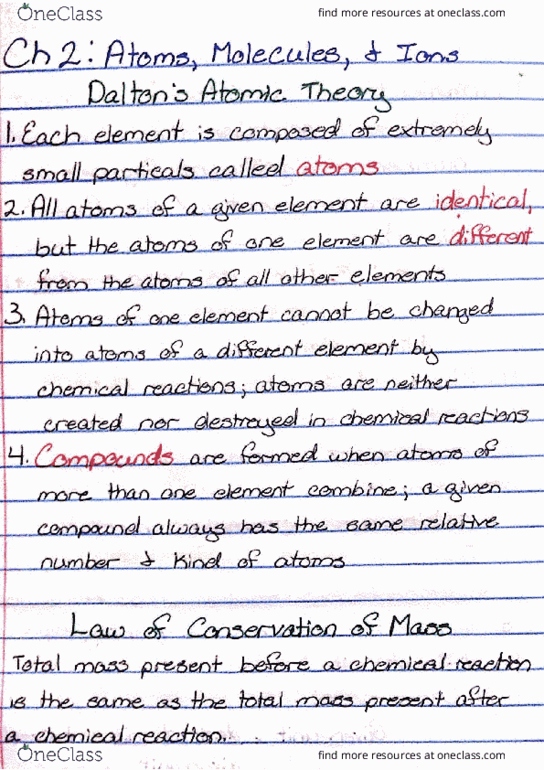 OneClass find more resources at oneclass.com
Ch 2: Atoms, Molecules, & Ions
Dalton's Atomic Theory
1. Each element is composed of extremely
small particals called atoms
2. All atoms of a given element are identical,
but the atoms of one element are different
from the atoms of all other elements
3. Atoms of one element cannot be changed
into atoms of a different element by
chemical reactions; atoms are neither
created nor destroyed in chemical reactions
4. Compounds are formed when atoms of
more than one element combine; a given
compound always has the same relative
number & kind of atoms
Law of Conservation of Mass
Total mass present before a chemical reaction
is the same as the total mass present after
a chemical reaction.
OneClass find more resources at oneclass.com